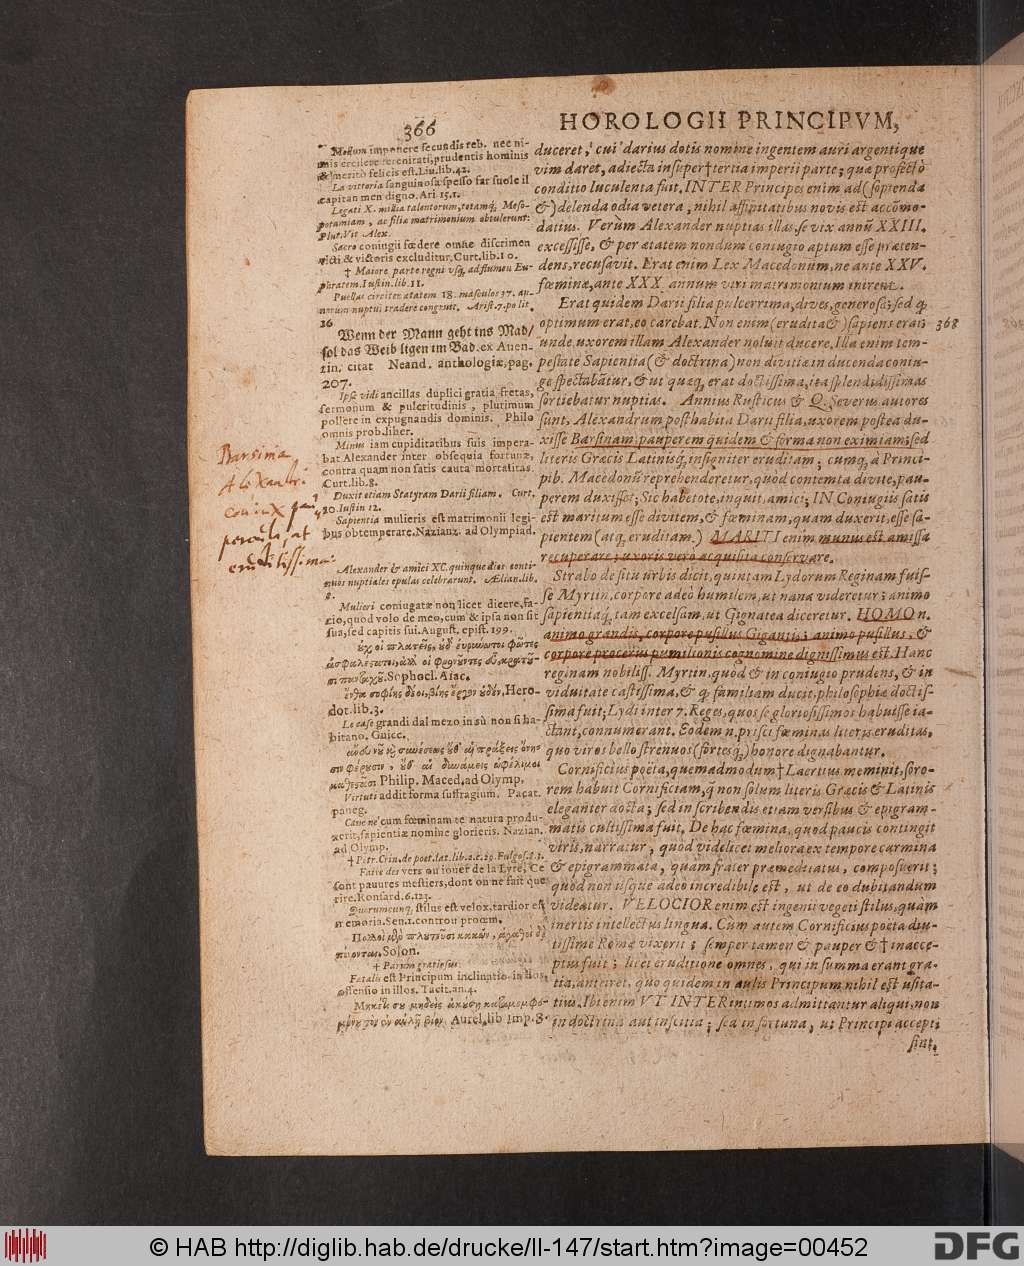 366
HOROLOGII PRINCIPVM,
Modum imponere secundis reb. nec ni-
mis credere serenitati, prudentis hominis
& meritò felicis est. Liu. lib. 42.
La vittoria sanguinosa spesso far suole il
capitan men digno. Ari 15.1.
Legati X. millia talentorum, totamq́; Meso-
potamiam, ac filiæ matrimonium obtulerunt:
Plut. Vit Alex.
Sacro coniugii fœdere omne discrimen
victi & victoris excluditur. Curt. lib. 10.
† Maiore parte regni vsq́; ad flumen Eu-
phratem. Iustin. lib. 11.
Puellas circiter ætatem 18. masculos 37. an-
norum nuptui tradere congruit. Arist. 7. polit.
16
Wenn der Mann geht ins Mad/
sol das Weib ligen im Bad. ex Auen-
tin. citat Neand. anthologiæ, pag.
207.
Ipse vidi ancillas duplici gratia fretas,
sermonum & pulcritudinis, plurimum
pollere in expugnandis dominis. Philo
omnis prob. liber.
Minus iam cupiditatibus suis impera-
bat Alexander inter obsequia fortunæ,
contra quam non satis cauta mortalitas.
Curt. lib. 8.
Duxit etiam Statyram Darii filiam. Curt.
10. Iustin 12.
Sapientia mulieris est matrimonii legi-
bus obtemperare. Nazianz. ad Olympiad.
Alexander & amici XC. quinque dies conti-
nuos nuptiales epulas celebrarunt. Ælian. lib.
8.
Mulieri coniugatæ non licet dicere, fa-
cio, quod volo de meo, cum & ipsa non sit
sua, sed capitis sui. August. epist. 199.
οὐχ οἱ πλατεῖς, οὐδ' εὐρύνωτοι φῶτες
ἀσφαλέστατοι, ἀλλ' οἱ φρονοῦντες εὖ κρατοῦ-
σι πανταχοῦ. Sophocl. Aiac.
Hero-
dot. lib. 3.
Le case grandi dal mezo in sù non si ha-
bitano. Guicc.
Philip. Maced. ad Olymp.
Virtuti addit forma suffragium. Pacat.
paneg.
Cane ne cum fœminam te natura produ-
xerit, sapientiæ nomine glorieris. Nazian.
ad Olymp.
† Petr. Crin. de poet. lat. lib. 2. c. 29. Fulgos. l. 1.
Faire des vers ou iouer de la Lyre, Ce
sont pauures mestiers, dont on ne fait que
rire. Ronsard. 6. 123.
Quorumcunq; stilus est velox, tardior est
memoria. Sen. 1. controu proœm.
Solon.
† Parum gratiosus.
Fatalis est Principum inclinatio in illos,
offensio in illos. Tacit. an. 4.
Aurel. lib Imp. 8.
duceret, cui darius dotis nomine ingentem auri argentique
vim daret, adiecta insuper † tertia imperii parte; quæ profectò
conditio luculenta fuit. INTER Principes enim ad (sopienda
&) delenda odia vetera, nihil affinitatibus novis est accõmo-
datius. Verùm Alexander nuptias illas, se vix annũ XXIII.
excessisse, & per ætatem nondum coniugio aptum esse præten-
dens, recusavit. Erat enim Lex Macedonum, ne ante XXV.
fœminæ, ante XXX annum viri matrimonium inirent.
Erat quidem Darii filia pulcerrima, dives, generosa; sed q̃
optimum erat, eo carebat. Non enim (erudita &) sapiens erat; 368
unde uxorem illam Alexander noluit ducere. Illa enim tem-
pestate Sapientia (& doctrina) non divitiæ in ducenda coniu-
ge spectabãtur, & ut quæq; erat doctissima, ita splendidissimas
sortiebatur nuptias. Annius Rusticus & Q. Severus autores
sunt, Alexandrum posthabita Darii filia, uxorem postea du-
xisse Barsinam, pauperem quidem & forma non eximiam; sed
literis Græcis Latinisq́; insigniter eruditam; cumq́; à Princi-
pib. Macedonũ reprehenderetur, quod contemta divite, pau-
perem duxisset; Sic habetote, inquit, amici; IN Coniugiis satis
est maritum esse divitem, & fœminam, quam duxerit, esse sa-
pientem (atq́; eruditam.) MARITI enim munus est amissa
recuperare; uxoris vero acquisita conservare.
Strabo de situ urbis dicit, quintam Lydorum Reginam fuis-
se Myrtin, corpore adeò humilem, ut nana videretur; animo
sapientiaq́; tam excelsam, ut Gigantea diceretur. HOMO n.
animo grandis, corpore pusillus Gigantis; animo pusillus, &
corpore procerus pumilionis cognomine dignissimus est. Hanc
reginam nobiliss. Myrtin, quòd & in coniugio prudens, & in
viduitate castissima, & q̃ familiam ducit, philosophiæ doctis-
sima fuit; Lydi inter 7. Reges, quos se gloriosissimos habuisse ia-
ctant, connumerant. Eodem n. prisci fœminas literis eruditas,
quo viros bello strenuos (fortesq́;) honore dignabantur.
Cornificius poëta, quemadmodum † Laertius meminit, soro-
rem habuit Cornificiam, q̃ non solum literis Græcis & Latinis
eleganter docta; sed in scribendis etiam versibus & epigram-
matis cultissima fuit. De hac fœmina, quod paucis contingit
viris, narratur, quòd videlicet meliora ex tempore carmina
& epigrammata, quàm frater præmeditatus, composuerit;
quod non usque adeò incredibile est, ut de eo dubitandum
videatur. VELOCIOR enim est ingenii vegeti stilus, quàm
inertis intellectus lingua. Cùm autem Cornificius poëta diu-
tissime Romæ vixerit; semper tamen & pauper & † inacce-
ptus fuit; licet eruditione omnes, qui in summa erant gra-
tia, anteiret, quo quidem in aulis Principum nihil est usita-
tius. Ibi enim VT INTER intimos admittantur aliqui, non
in doctrina aut inscitia; sed in fortuna, ut Principi accepti
sint,
Barsina
Alexandri
coniunx
© HAB http://diglib.hab.de/drucke/ll-147/start.htm?image=00452
DFG